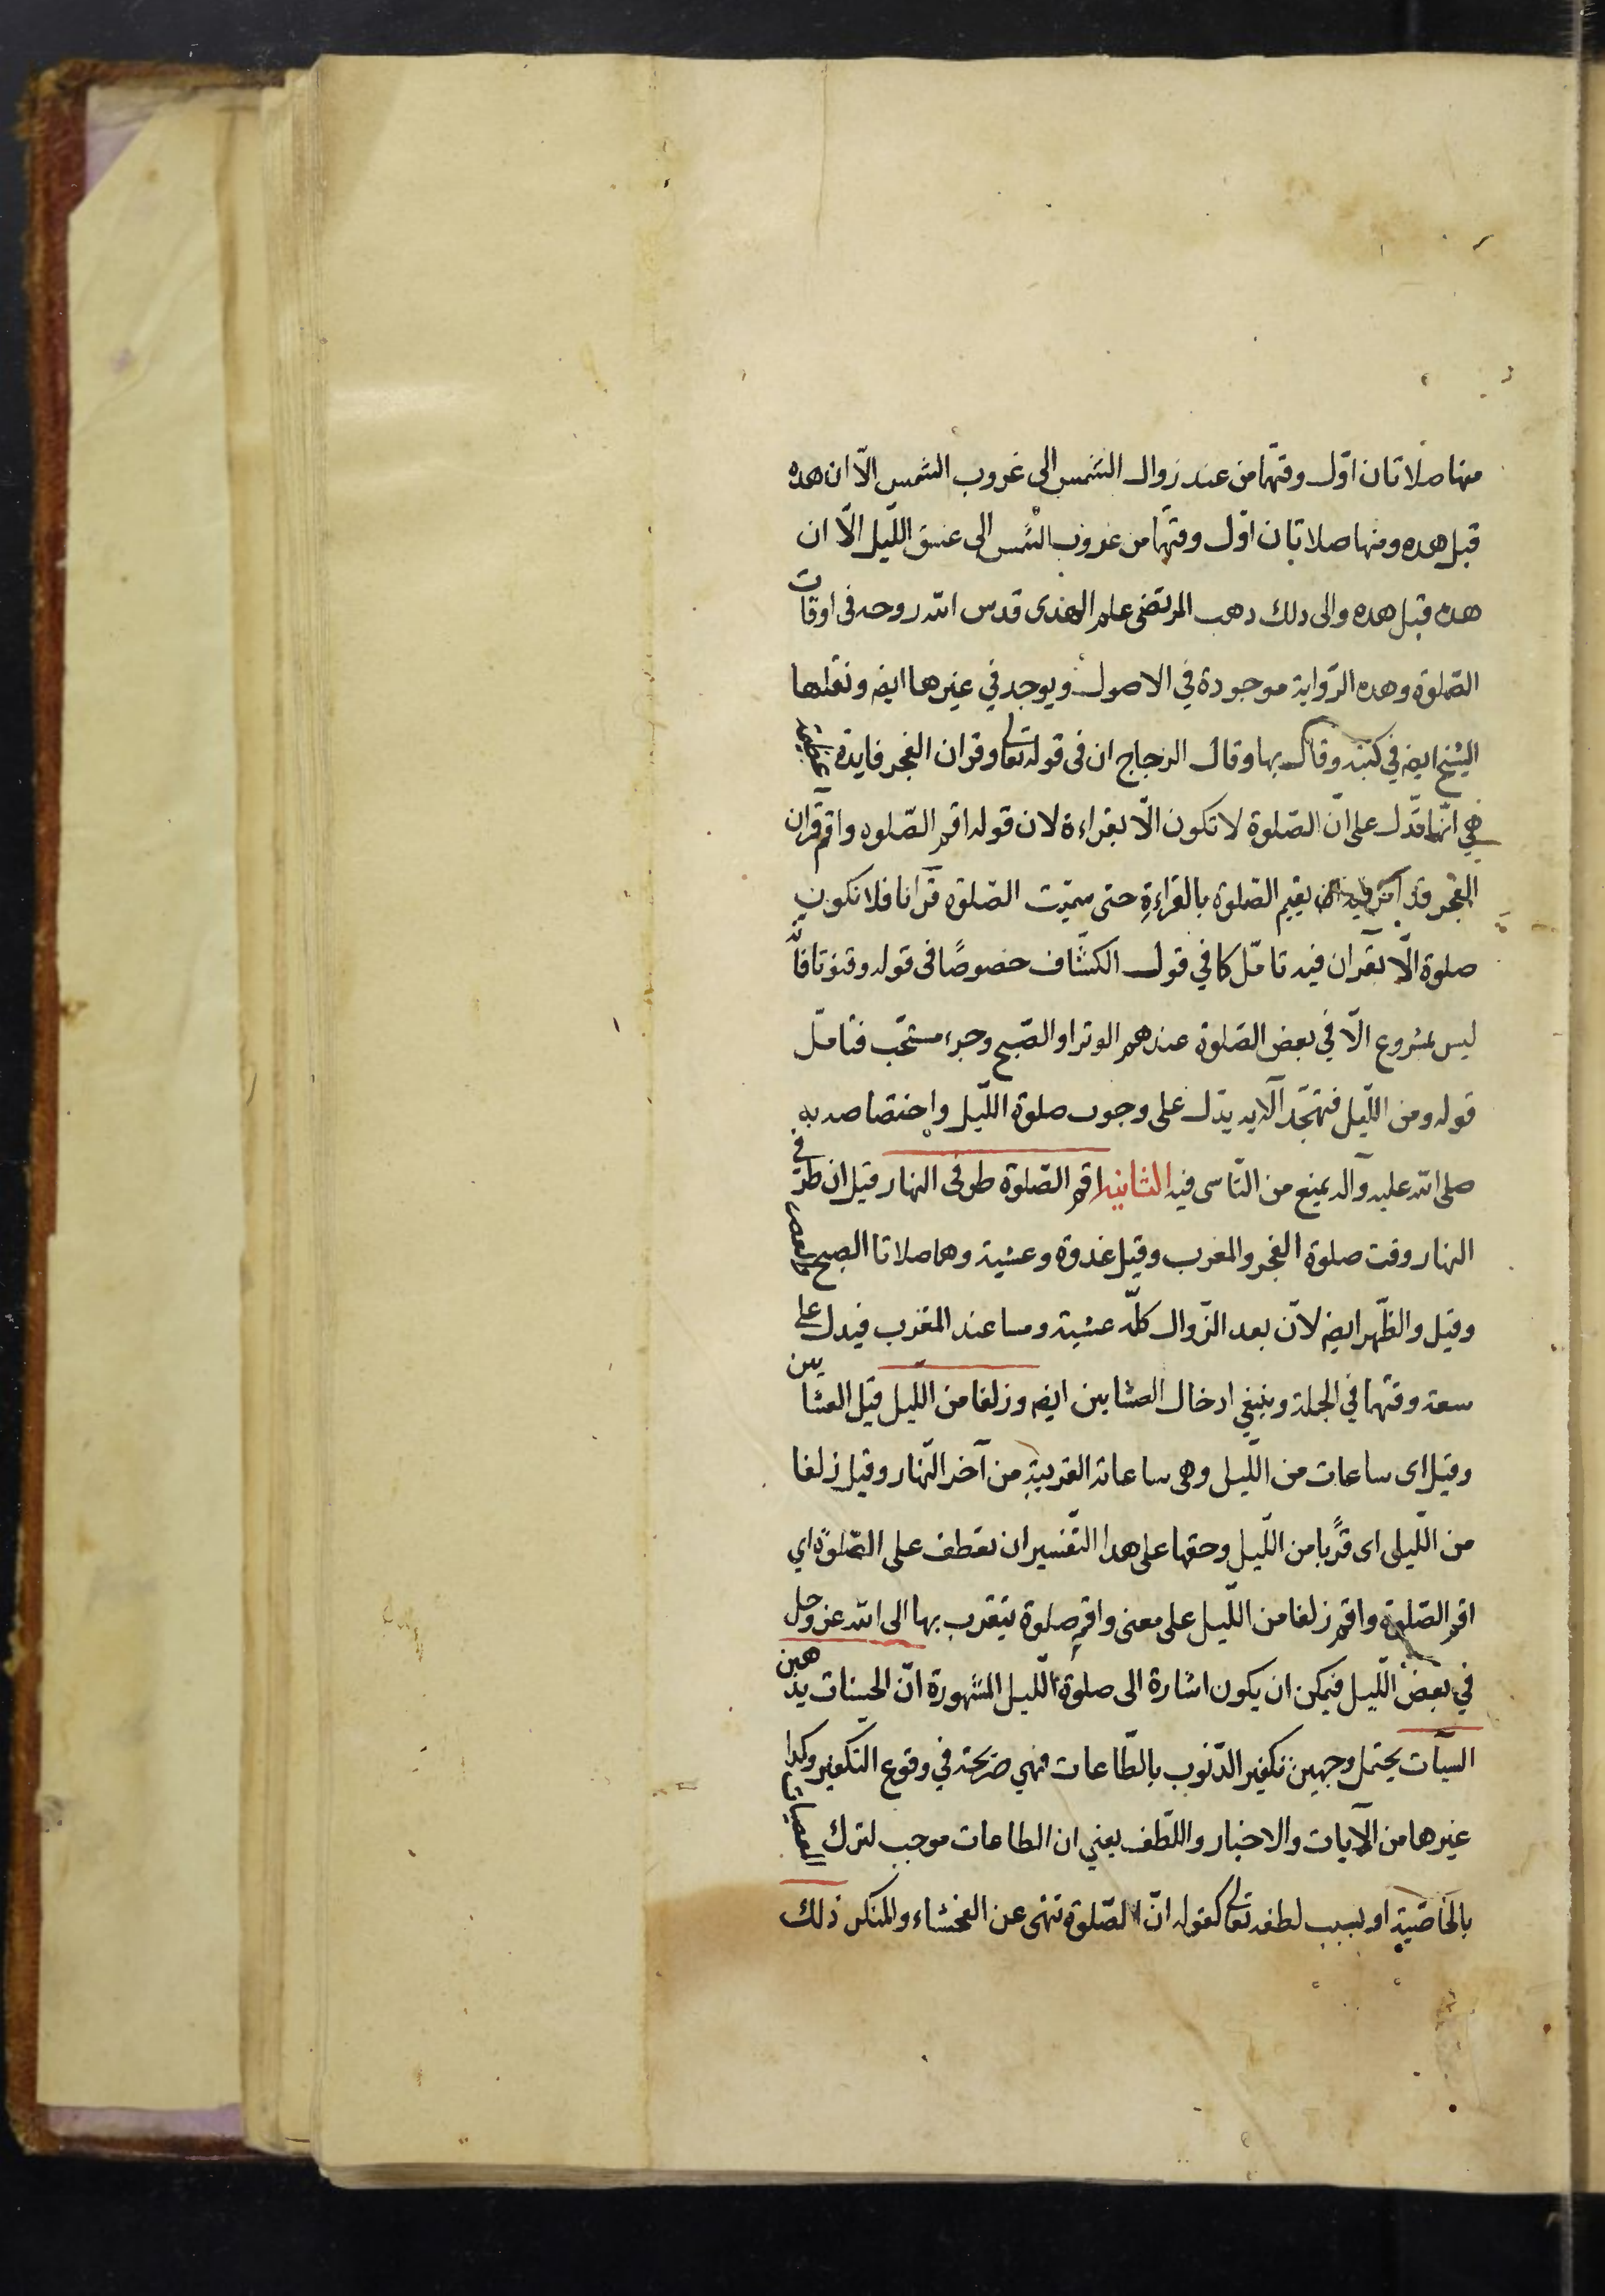 منها صلاتان اوّل وقتهما من عند زوال الشمس الى غروب الشمس الّا ان هذه
قبل هذه ومنها صلاتان اوّل وقتهما من غروب الشمس الى غسق اللّيل الّا ان
هذه قبل هذه والى ذلك ذهب المرتضى علم الهدى قدس الله روحه فى اوقات
الصّلوة وهذه الرّواية موجودة في الاصول ويوجد في غيرها ايضا ونقلها
الشيخ ايضا في كتبه وقال بها وقال الزجاج ان فى قوله تعالى وقران الفجر فايدة عظيمة
هي انّها تدّل على انّ الصّلوة لا تكون الّا بقراءة لان قوله اقم الصّلوة واقم قرآن
الفجر قد امر فيه ان يقيم الصّلوة بالقراءةِ حتى سمّيت الصّلوة قرآنا فلا تكون
صلوة الّا بقرآن فيه تامّل كما في قول الكشّاف خصوصًا فى قوله وقنوتا فانّه
ليس بمشروع الّا في بعض الصّلوة عندهم الوتر او الصّبح وجزء مستحّب فتامّل
قوله ومن اللّيل فتهجّد الآيه يدّل على وجوب صلوة اللّيل واختصاصه به
صلى الله عليه وآله يمنع من التّاسى فيه الثانية اقم الصّلوة طرفى النهار قيل ان طرفي
النهار وقت صلوة الفجر والمغرب وقيل غدوة وعشية وهما صلاتا الصبح والعصر
وقيل والظّهر ايضا لانّ بعد الزّوال كلّه عشية ومسا عند المغرب فيدل على
سعة وقتهما في الجملة وينبغي ادخال العشايين ايضا وزلفا من اللّيل قيل العشايين
وقيل اى ساعات من اللّيل وهى ساعاته القريبة من آخر النّهار وقيل زلفا
من اللّيلى اى قربًا من اللّيل وحقها على هذا التّفسير ان تعطف على الصّلوة اي
اقم الصّلوة واقم زلفا من اللّيل على معنى واقم صلوة يتقرب بها الى الله عز وجل
في بعض اللّيل فيمكن ان يكون اشارة الى صلوة اللّيل المشهورة انّ الحسنات يذهبن
السيّآت يحتمل وجهين تكفير الذّنوب بالطّاعات فهي صريحة في وقوع التّكفير وكذا
غيرها من الآيات والاخبار واللّطف يعني ان الطاعات موجب لترك المعصيات
بالخاصّية او بسبب لطفه تعالى كقوله انّ الصّلوة تنهى عن الفحشاء والمنكر ذلك